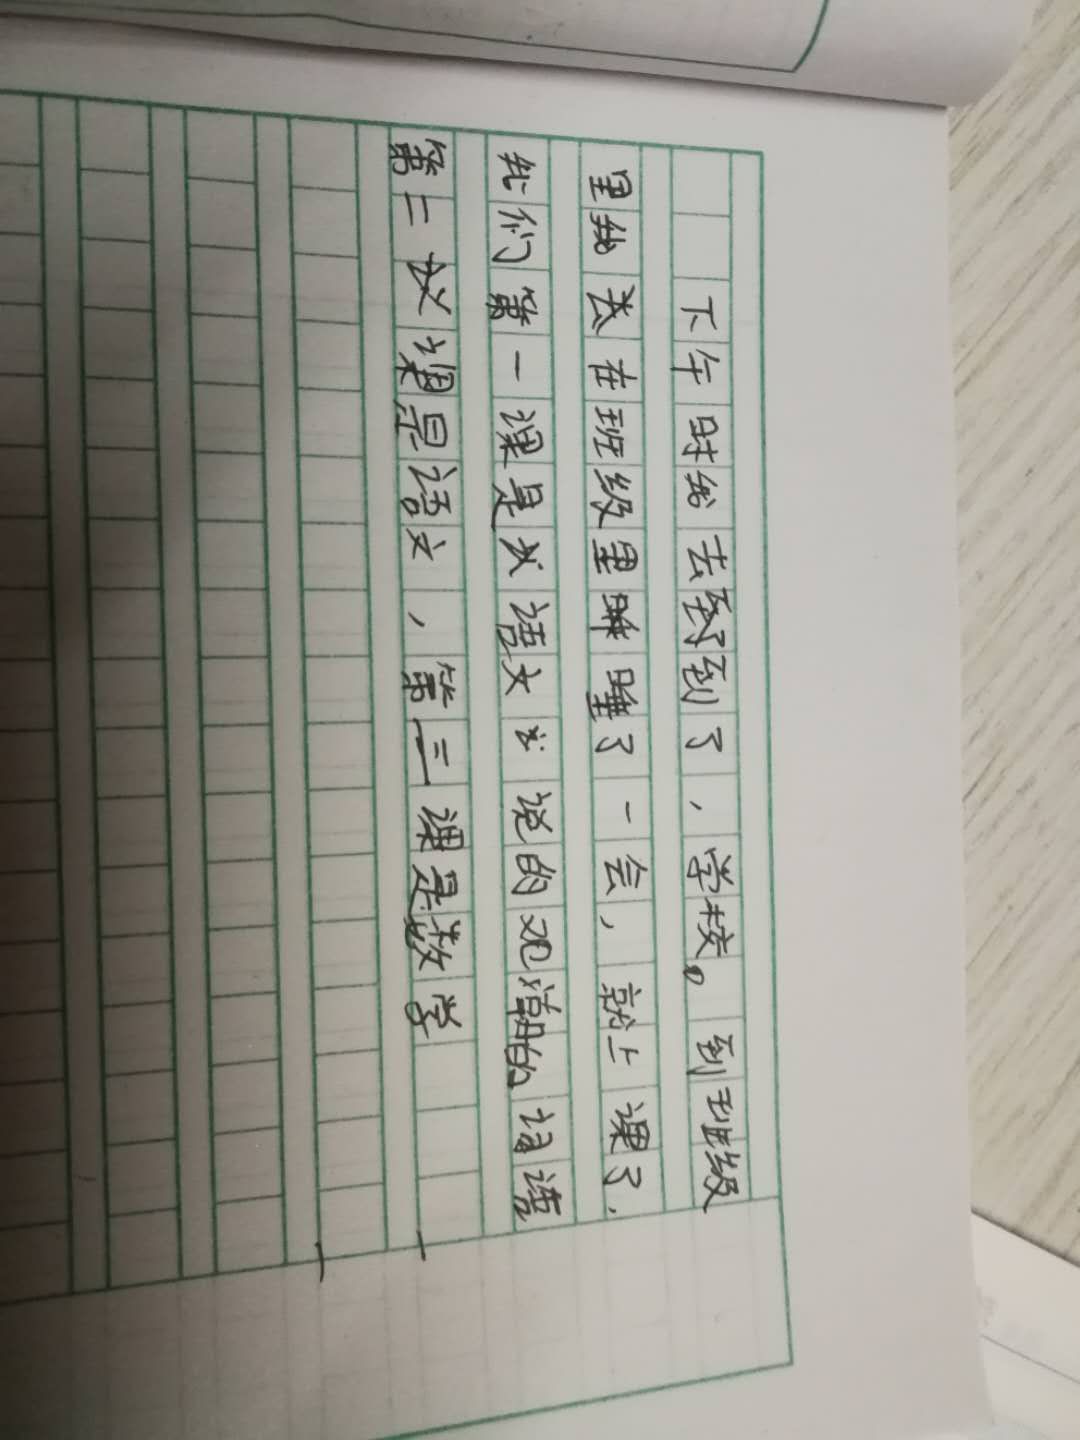 下午时我去到到了，学校。到班级
里我去在班级里睡睡了一会，就上课了.
我们第一课是语文说的观潮的词语
第二课是语文，第三课是数学